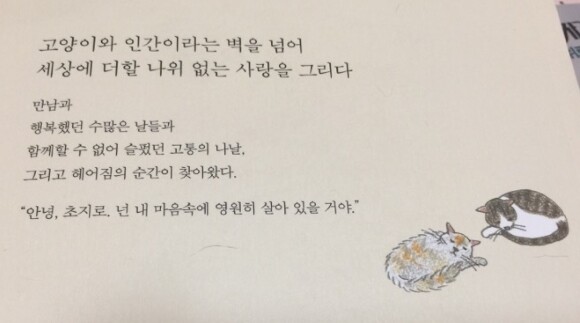 고양이와 인간이라는 벽을 넘어
세상에 더할 나위 없는 사랑을 그리다
만남과
행복했던 수많은 날들과
함께할 수 없어 슬펐던 고통의 나날,
그리고 헤어짐의 순간이 찾아왔다.
“안녕, 초지로. 넌 내 마음속에 영원히 살아 있을 거야.”